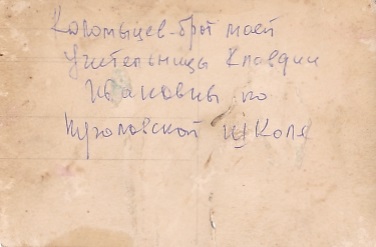 Коломыцев-брат моей
Учительницы Клавдии
Ивановны по
школя